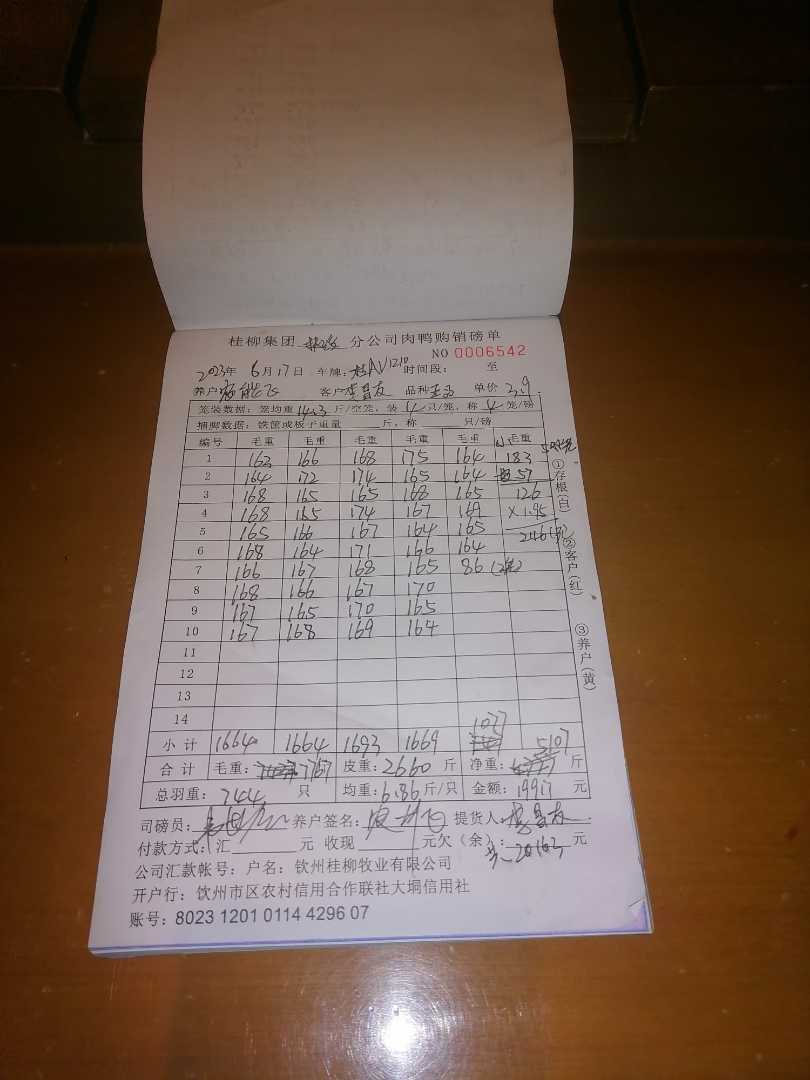 桂柳集团 分公司肉鸭购销磅单
NO 0006542
2023年 6月17日 车牌:桂AV1210 时间段: 至
养户: 客户:李昌友 品种 单价 3.9
笼装数据:笼均重 14.3 斤/空笼,装 只/笼,称 4 笼/磅
捕脚数据:铁筐或板子重量 斤,称 只/磅
编号 毛重 毛重 毛重 毛重 毛重 毛重
1 163 166 168 175 164 183
2 164 172 174 165 164 57
3 168 165 165 168 165 126
4 168 165 174 167 169 ×1.95
5 165 166 167 164 165 246元
6 168 164 171 166 164
7 166 167 168 165 86 (2笼)
8 168 166 167 170
9 167 165 170 165
10 167 168 169 164
11
12
13
14
小计 1664 1664 1693 1669 1077 5107
合计 毛重: 7767 皮重:2660 斤 净重: 斤
总羽重:744 只 均重:6.86斤/只 金额:19917 元
司磅员: 养户签名: 提货人:
付款方式:汇 元 收现 元欠(余): 20163 元
公司汇款帐号:户名:钦州桂柳牧业有限公司
开户行:钦州市区农村信用合作联社大垌信用社
账号:8023 1201 0114 4296 07
①存根(白)
②客户(红)
③养户(黄)